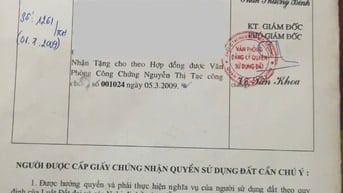 Số: 1261
(01.7.2009)
KT. GIÁM ĐỐC
PHÓ GIÁM ĐỐC
VĂN PHÒNG
ĐĂNG KÝ QUYỀN
SỬ DỤNG ĐẤT
Khoa
Nhận Tặng cho theo Hợp đồng được Văn
Phòng Công Chứng Nguyễn Thị Tạc công
số 001024 ngày 05.3.2009.
NGƯỜI ĐƯỢC CẤP GIẤY CHỨNG NHẬN QUYỀN SỬ DỤNG ĐẤT CẦN CHÚ Ý :
1. Được hưởng quyền và phải thực hiện nghĩa vụ của người sử dụng đất theo quy